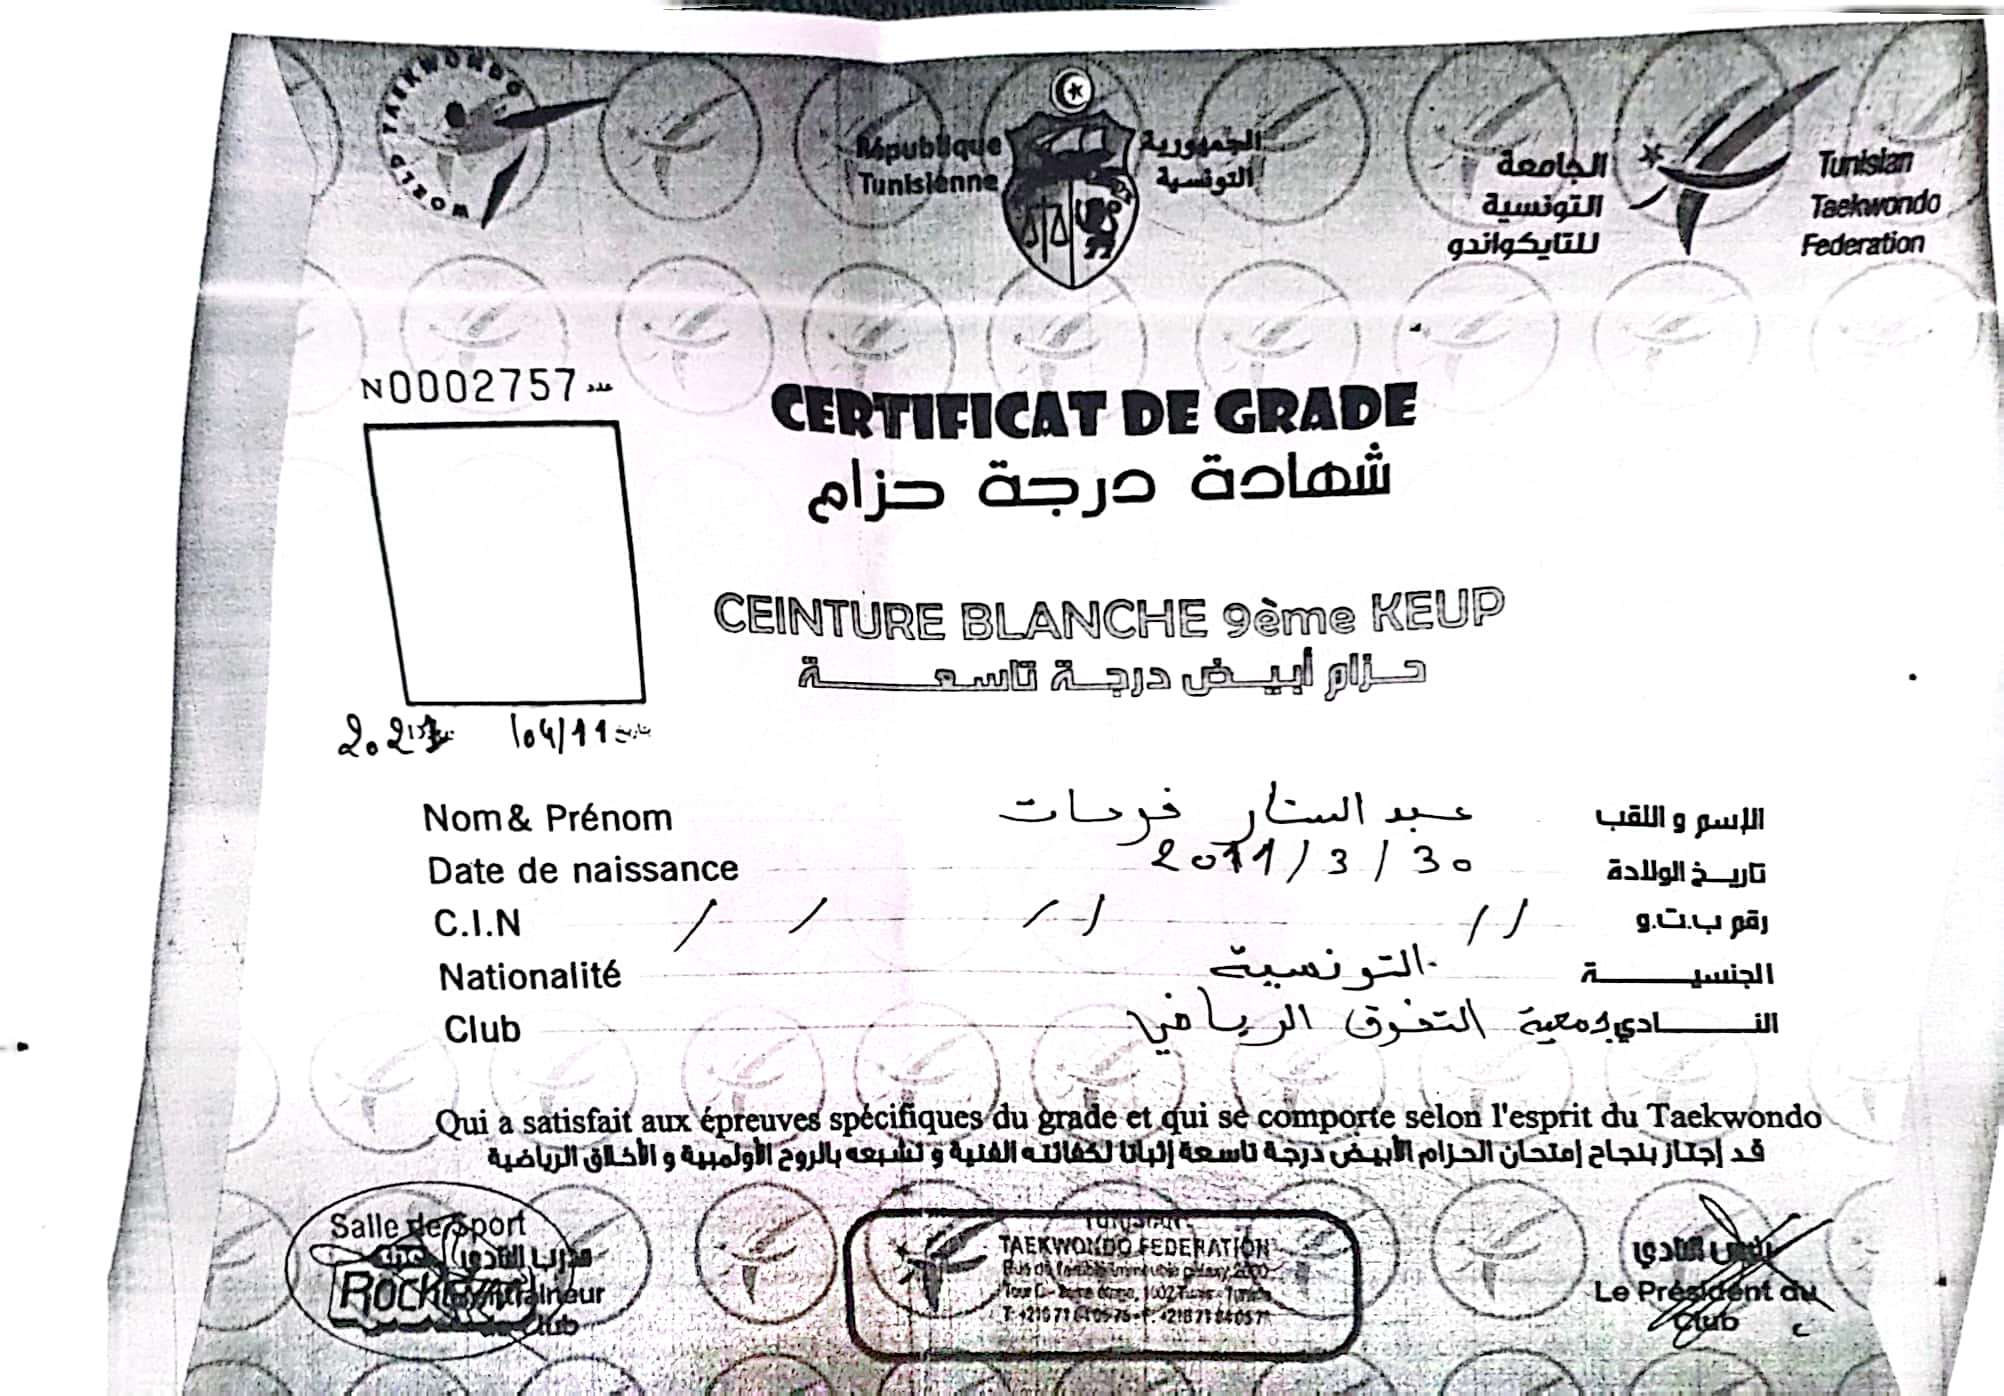 WORLD TAEKWONDO
République
Tunisienne
الجمهورية
التونسية
الجامعة
التونسية
للتايكواندو
Tunisian
Taekwondo
Federation
N0002757 عدد
CERTIFICAT DE GRADE
شهادة درجة حزام
CEINTURE BLANCHE 9ème KEUP
حزام أبيض درجة تاسعة
بتاريخ 11/04/
Nom & Prénom عبد الستار فرحات الإسم و اللقب
Date de naissance 2011/3/30 تاريخ الولادة
C.I.N / / / / / / رقم ب.ت.و
Nationalité التونسية الجنسية
Club جمعية التفوق الرياضي النادي
Qui a satisfait aux épreuves spécifiques du grade et qui se comporte selon l'esprit du Taekwondo
قد إجتاز بنجاح إمتحان الحزام الأبيض درجة تاسعة إثباتا لكفائته الفنية و تشبعه بالروح الأولمبية و الأخلاق الرياضية
Salle de Sport
مدرب النادي
the
Rock
Entraineur
Club
TUNISIAN
TAEKWONDO FEDERATION
رئيس النادي
Le Président du
Club